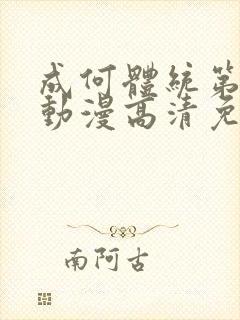 成何體統第
動漫高清免
南阿古